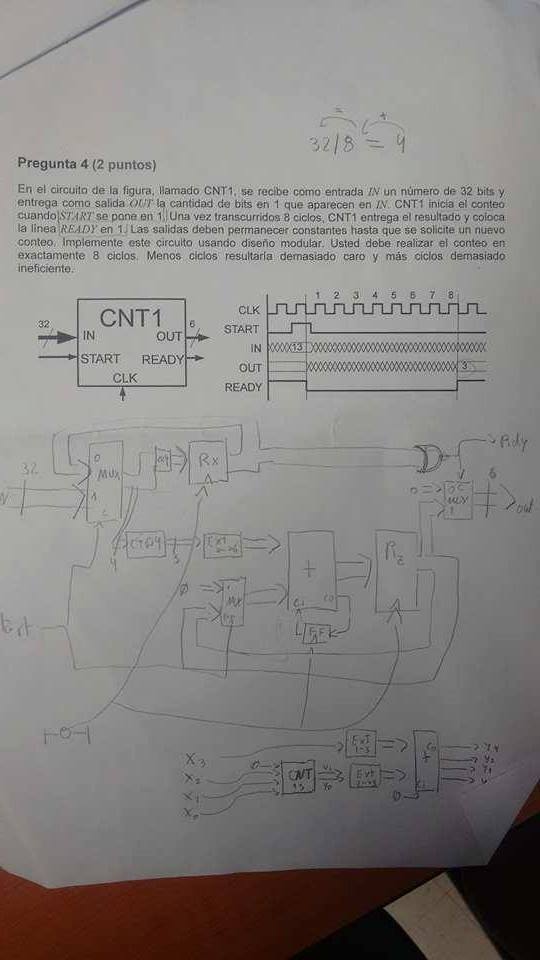 32/8 = 4
Pregunta 4 (2 puntos)
En el circuito de la figura, llamado CNT1, se recibe como entrada IN un número de 32 bits y
entrega como salida OUT la cantidad de bits en 1 que aparecen en IN. CNT1 inicia el conteo
cuando START se pone en 1. Una vez transcurridos 8 ciclos, CNT1 entrega el resultado y coloca
la línea READY en 1. Las salidas deben permanecer constantes hasta que se solicite un nuevo
conteo. Implemente este circuito usando diseño modular. Usted debe realizar el conteo en
exactamente 8 ciclos. Menos ciclos resultaría demasiado caro y más ciclos demasiado
ineficiente.
32 CNT1 6
IN OUT
START READY
CLK
1 2 3 4 5 6 7 8
CLK
START
IN 13
OUT 3
READY
32
0
MUX
1
Rx
Rdy
6
MUX
out
4
3
Ext
+
Rz
Ø
Mux
FF
X3
X2
X1
X0
Ø
CNT
Ext
Ext
+
Co
Ci
Ø